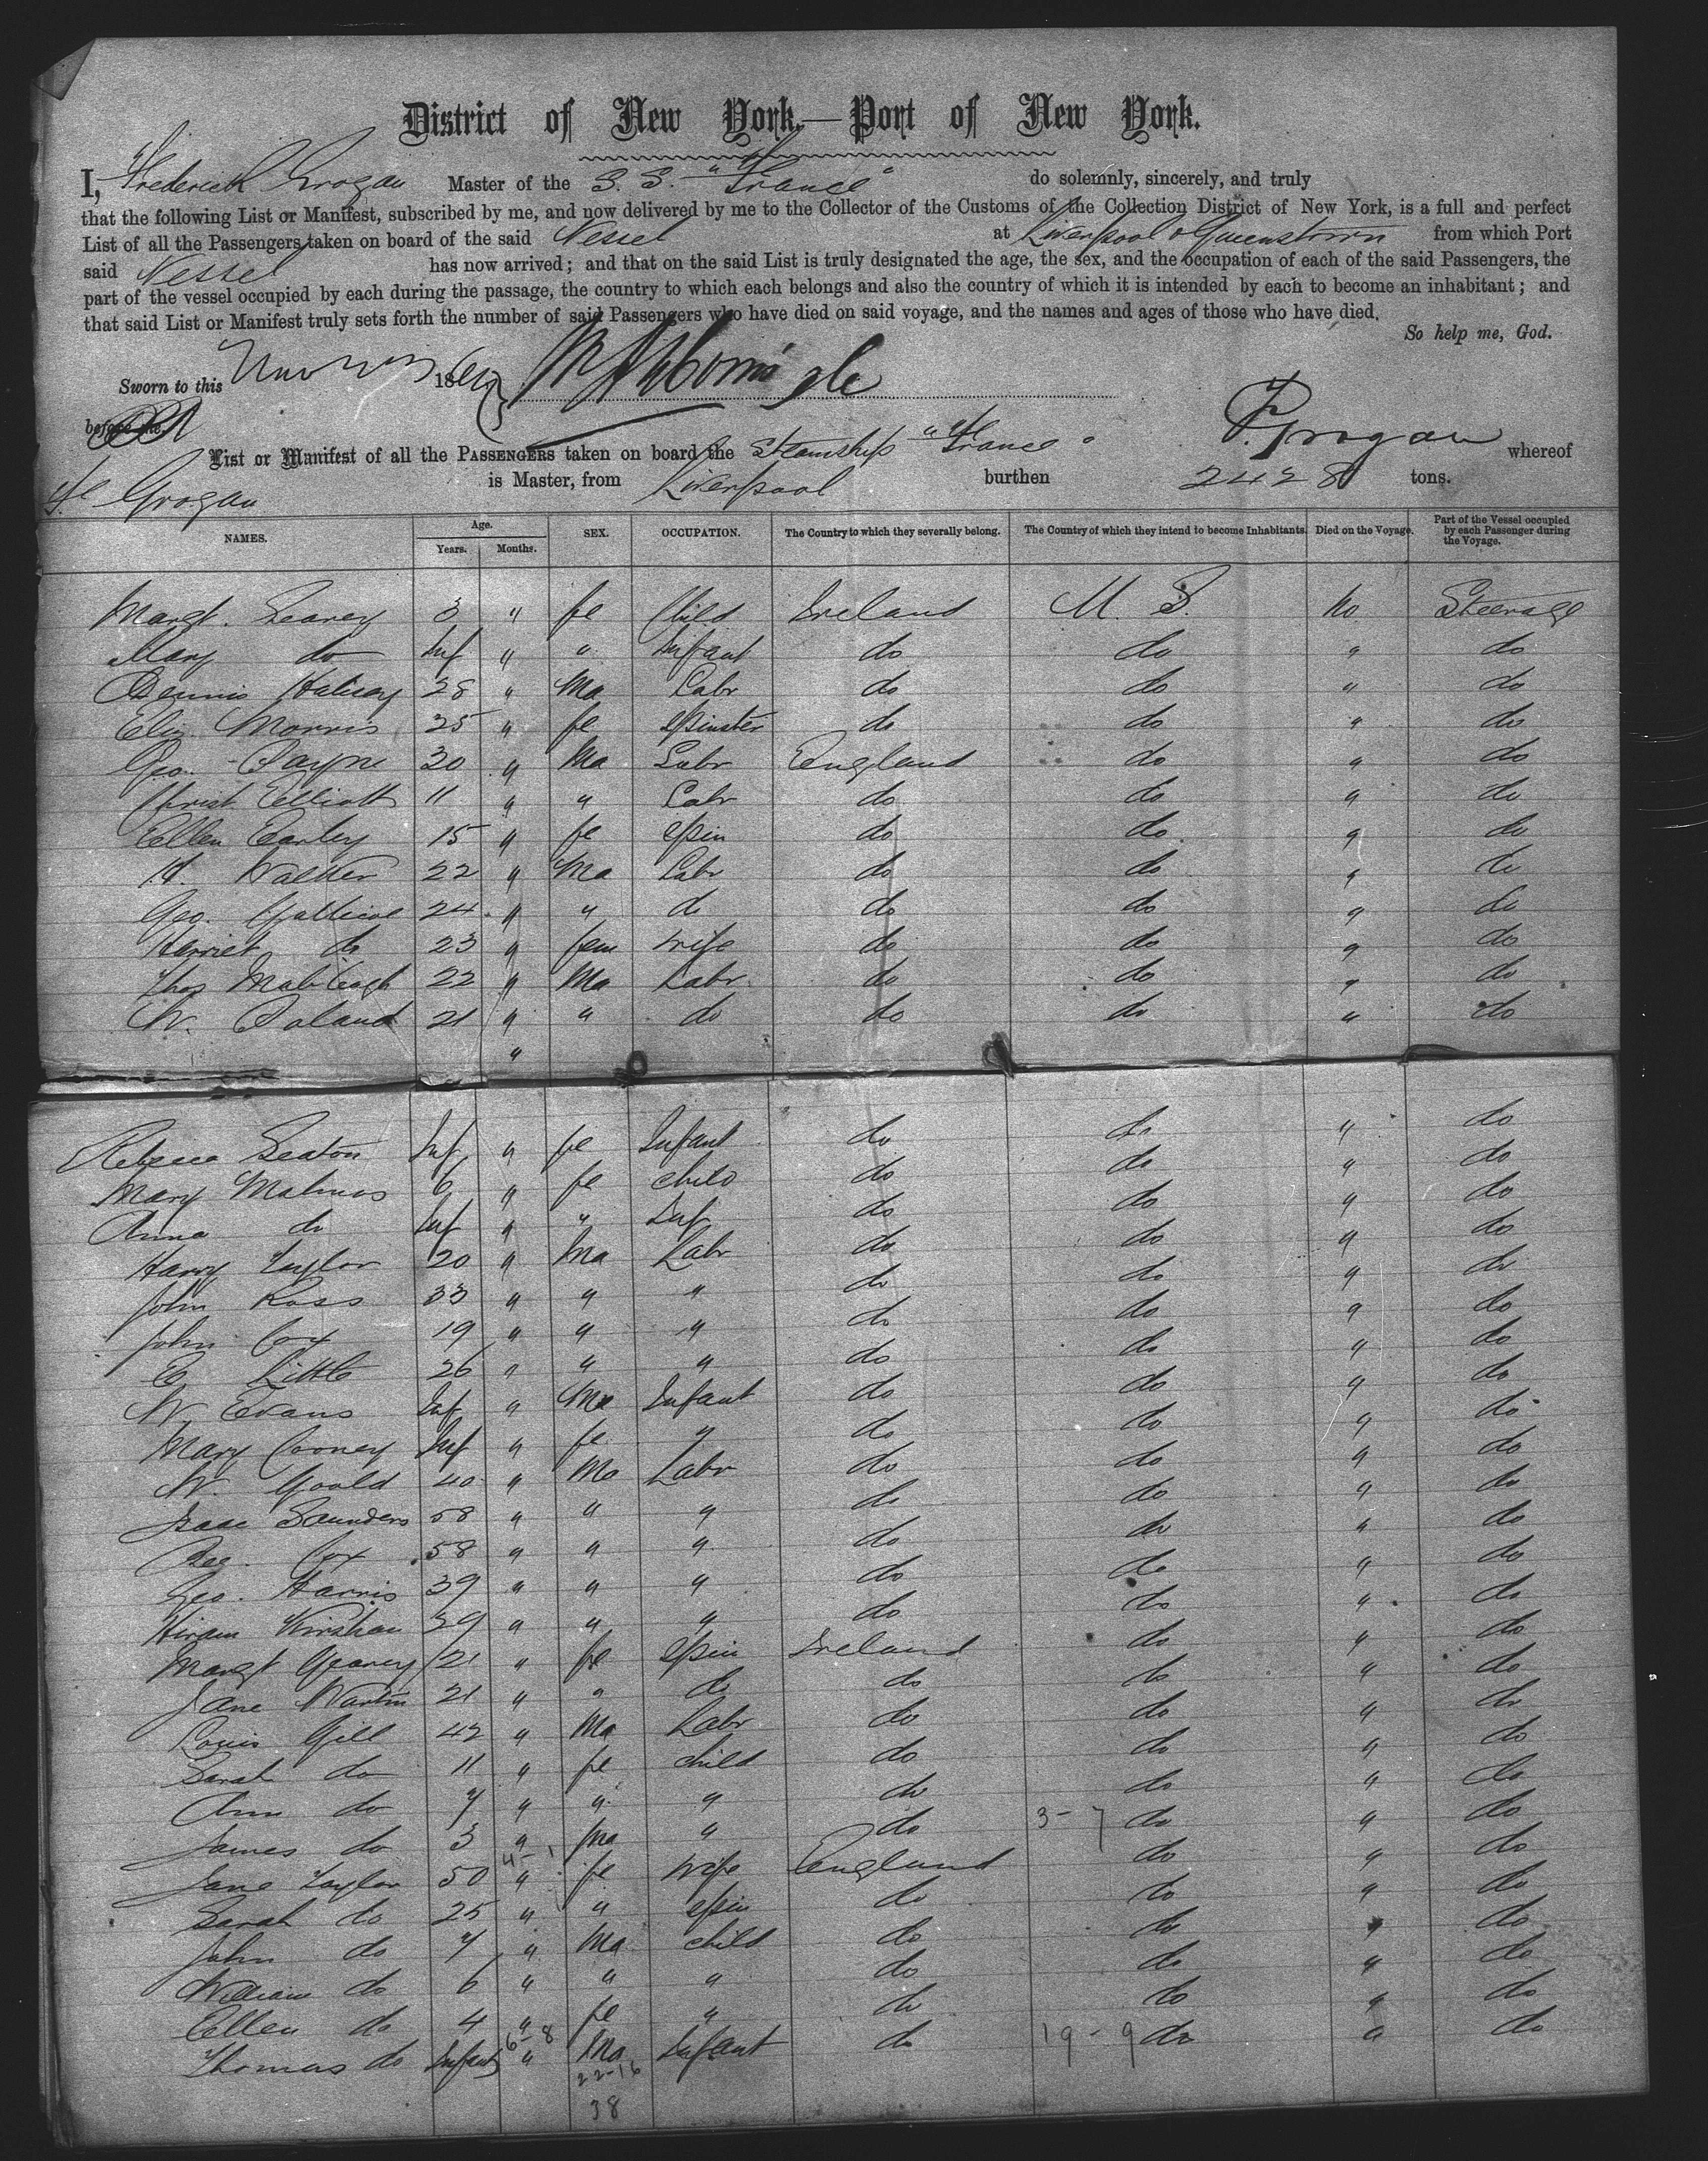 District of New York,—Port of New York.
I, Frederick Grogan Master of the S. S. "France" do solemnly, sincerely, and truly
that the following List or Manifest, subscribed by me, and now delivered by me to the Collector of the Customs of the Collection District of New York, is a full and perfect
List of all the Passengers taken on board of the said Vessel at Liverpool & Queenstown from which Port
said Vessel has now arrived; and that on the said List is truly designated the age, the sex, and the occupation of each of the said Passengers, the
part of the vessel occupied by each during the passage, the country to which each belongs and also the country of which it is intended by each to become an inhabitant; and
that said List or Manifest truly sets forth the number of said Passengers who have died on said voyage, and the names and ages of those who have died.
So help me, God.
Sworn to this 18
before me
List or Manifest of all the PASSENGERS taken on board the Steamship "France" F. Grogan whereof
F. Grogan is Master, from Liverpool burthen 2428 tons.
NAMES. Age. Years. Months. SEX. OCCUPATION. The Country to which they severally belong. The Country of which they intend to become Inhabitants. Died on the Voyage. Part of the Vessel occupied by each Passenger during the Voyage.
Margt. 3 " fe Child Ireland U. S. No Steerage
Mary do Inf " " Infant do do " do
Dennis 28 " Ma Labr do do " do
Eliz Morris 25 " fe Spinster do do " do
Geo. Payne 30 " Ma Labr England do " do
Christ Elliott 11 " " Labr do do " do
Ellen Earley 15 " fe Spin do do " do
H. Walker 22 " Ma Labr do do " do
Geo. 24 " " do do do " do
Harriet do 23 " fem wife do do " do
Thos 22 " Ma Labr do do " do
W. Poland 21 " " do do do " do
"
Rebecca Seaton Inf " fe Infant do do " do
Mary Malmos 6 " fe child do do " do
Anna do Inf " " Inf do do " do
Harry Taylor 20 " Ma Labr do do " do
John Ross 33 " " " do do " do
John Cox 19 " " " do do " do
C Little 26 " " " do do " do
W. Evans Inf " Ma Infant do do " do
Mary Cooney Inf " fe " do do " do
W. Goold 40 " Ma Labr do do " do
Isaac Saunders 58 " " " do do " do
Geo. Cox 58 " " " do do " do
Geo. Harris 39 " " " do do " do
Hiram 39 " " " do do " do
Margt Geaney 21 " fe Spin Ireland do " do
Jane Martin 21 " " do do do " do
Louis Gill 42 " Ma Labr do do " do
Sarah do 11 " fe child do do " do
Ann do 7 " " " do do " do
James do 3 " ma " do 3-7 do " do
Jane Taylor 50 4-1 " fe wife England do " do
Sarah do 25 " " Spin do do " do
John do 7 " Ma child do do " do
William do 6 " " " do do " do
Ellen do 4 " fe " do do " do
Thomas do Infant 6-8 " Ma Infant do 19-9 do " do
22-16
38